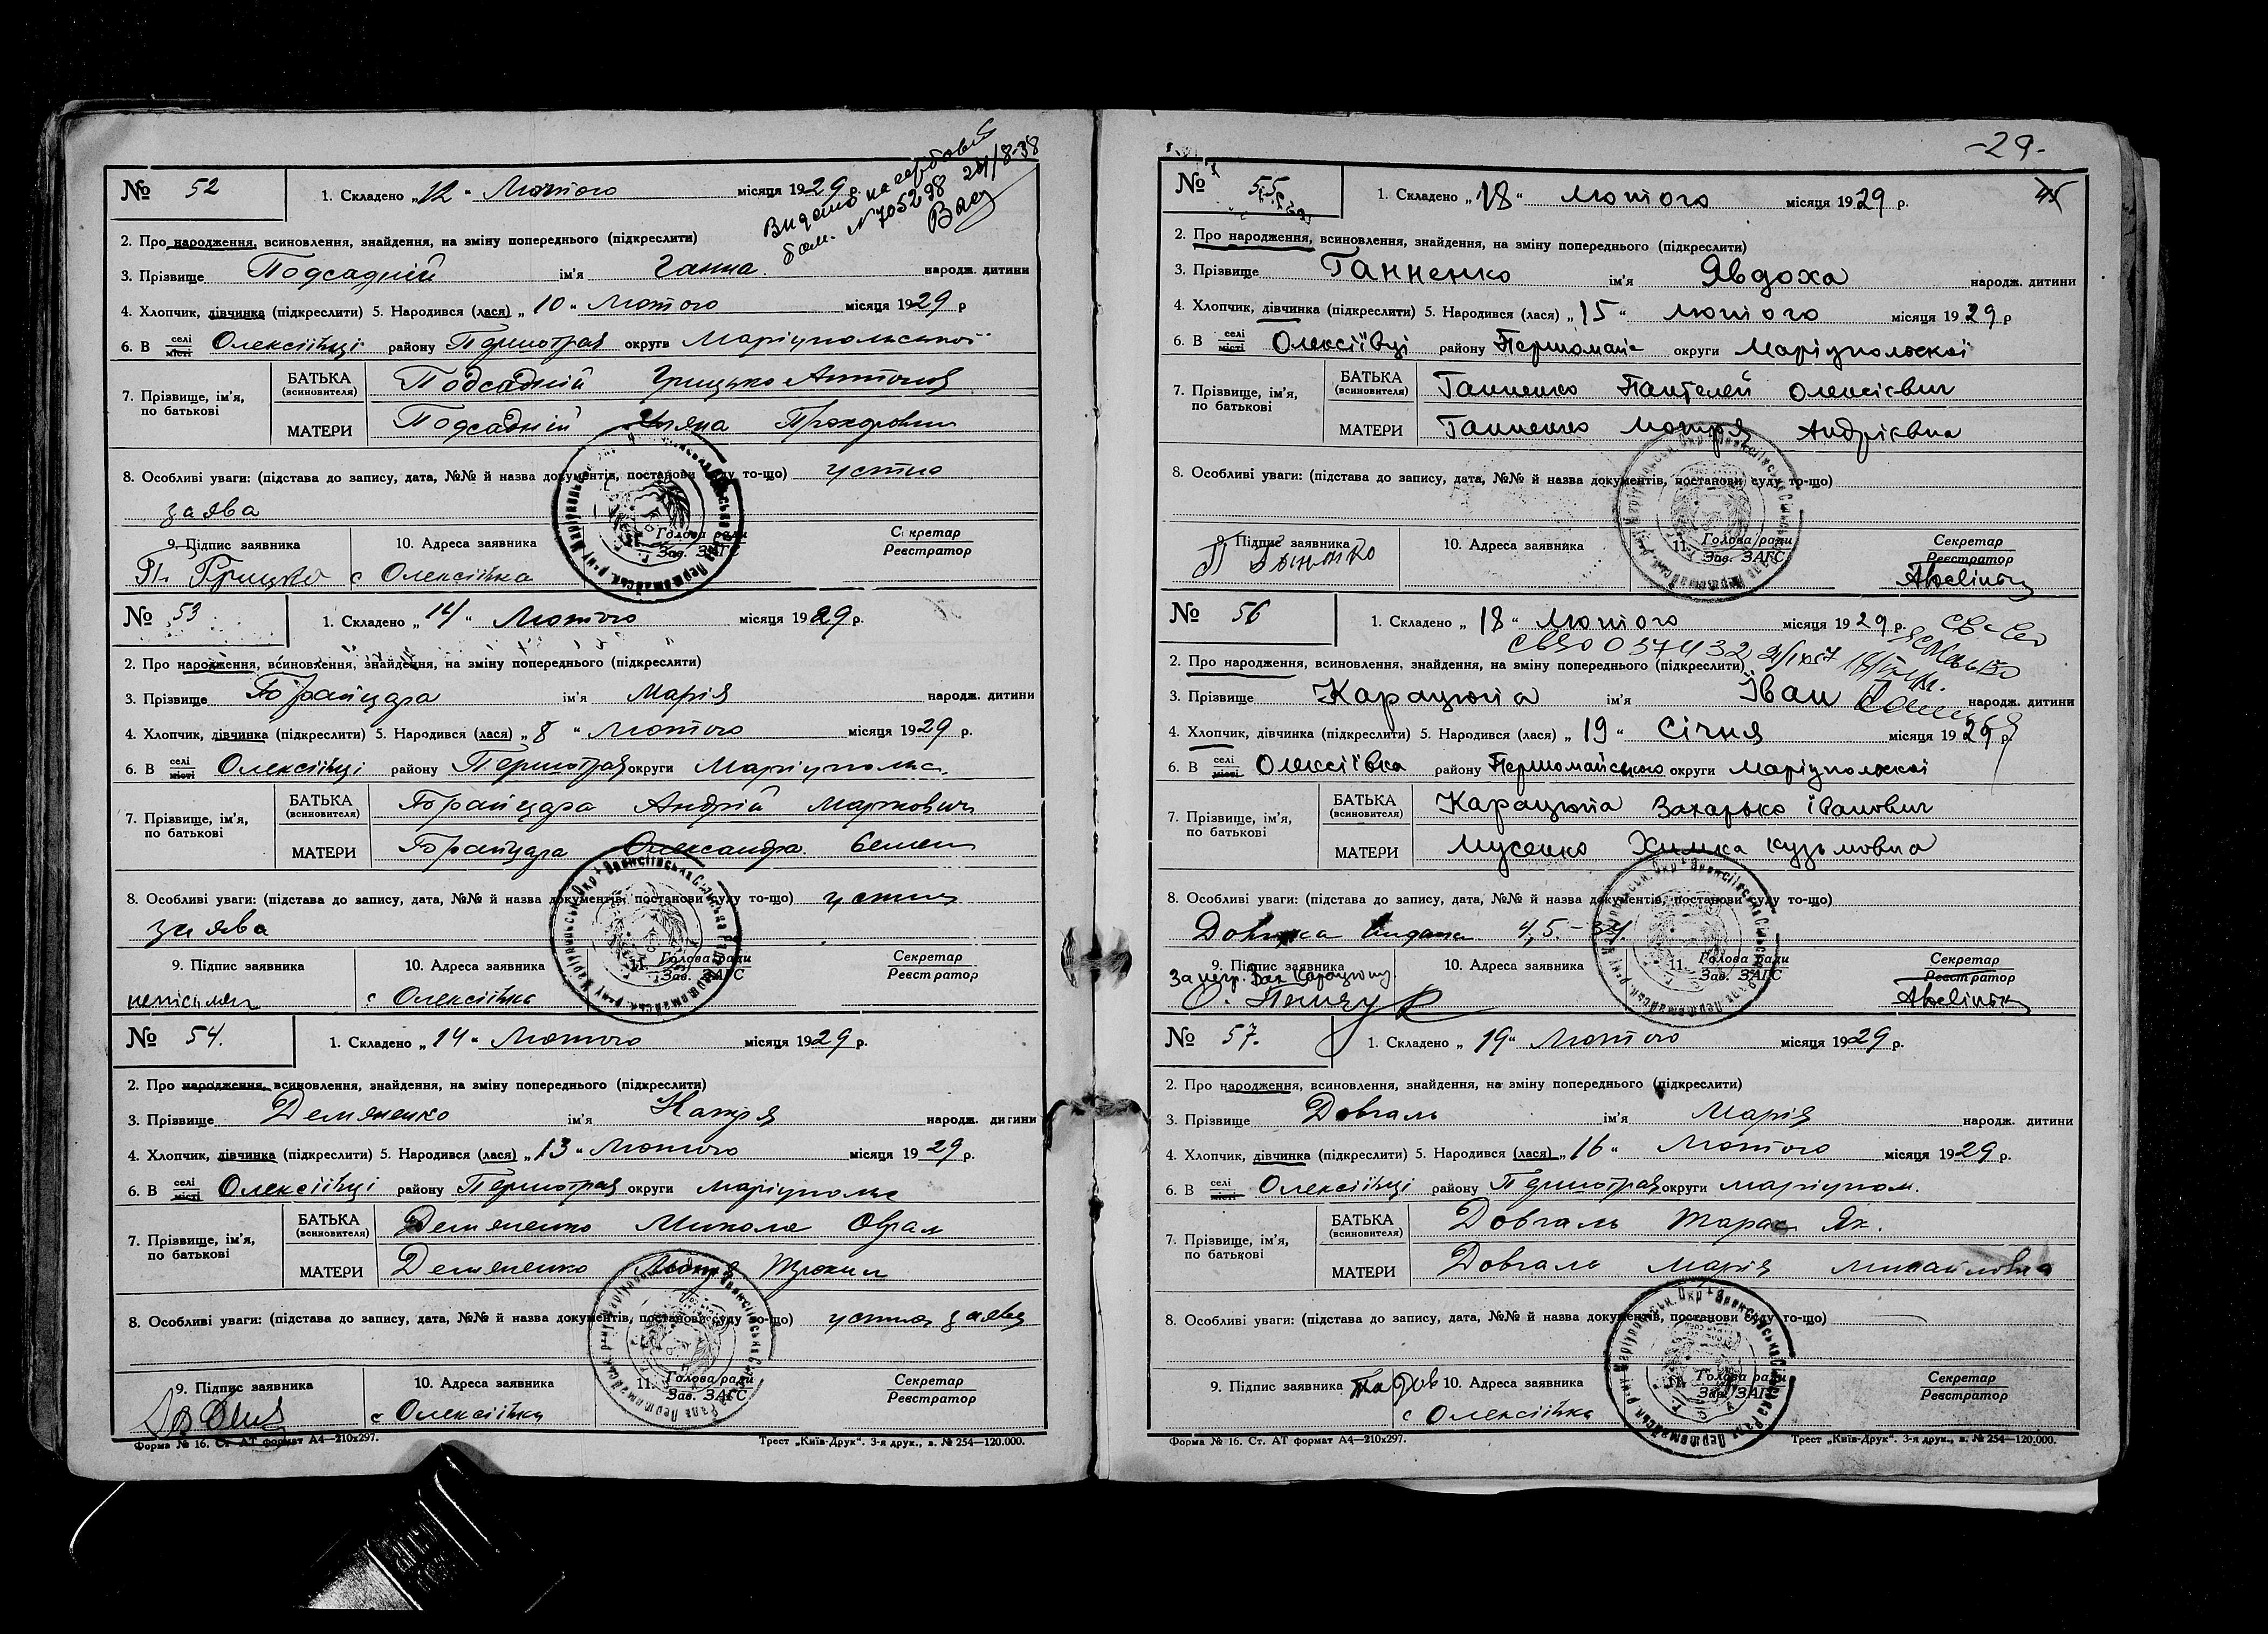 № 52
1. Складено „12" Лютого місяця 1929 р.
Видано на гербовій
бом. № 705298 24/8-38
2. Про народження, всиновлення, знайдення, на зміну попереднього (підкреслити)
3. Прізвище Подсадній ім'я Ганна народж. дитини
4. Хлопчик, дівчинка (підкреслити) 5. Народився (лася) „10" Лютого місяця 1929 р
6. В селі місті Олексіївці району Першотрав округи Маріупольської
7. Прізвище, ім'я, по батькові
БАТЬКА (всиновителя) Подсадній Грицько Антонов
МАТЕРИ Подсадній Уляна Прохоровна
8. Особливі уваги: (підстава до запису, дата, №№ й назва документів, постанови суду то-що) устно
заява
9. Підпис заявника 10. Адреса заявника 11. Голова ради Зав. ЗАГС Секретар Реєстратор
П. Грицько с Олексіївка
№ 53
1. Складено „14" Лютого місяця 1929 р.
2. Про народження, всиновлення, знайдення, на зміну попереднього (підкреслити)
3. Прізвище Горайцара ім'я Марія народж. дитини
4. Хлопчик, дівчинка (підкреслити) 5. Народився (лася) „8" Лютого місяця 1929 р.
6. В селі місті Олексіївці району Першотрав округи Маріупольс.
7. Прізвище, ім'я, по батькові
БАТЬКА (всиновителя) Горайцара Андрій Маркович
МАТЕРИ Горайцара Олександра Семен
8. Особливі уваги: (підстава до запису, дата, №№ й назва документів, постанови суду то-що) устна
заява
9. Підпис заявника 10. Адреса заявника 11. Голова ради Зав. ЗАГС Секретар Реєстратор
с Олексіївка
№ 54.
1. Складено „14" Лютого місяця 1929 р.
2. Про народження, всиновлення, знайдення, на зміну попереднього (підкреслити)
3. Прізвище Демяненко ім'я Катря народж. дитини
4. Хлопчик, дівчинка (підкреслити) 5. Народився (лася) „13" Лютого місяця 1929 р.
6. В селі місті Олексіївці району Першотрав округи Маріупольс
7. Прізвище, ім'я, по батькові
БАТЬКА (всиновителя) Демяненко Микола
МАТЕРИ Демяненко Мотря
8. Особливі уваги: (підстава до запису, дата, №№ й назва документів, постанови суду то-що) устна заява
9. Підпис заявника 10. Адреса заявника 11. Голова ради Зав. ЗАГС Секретар Реєстратор
с Олексіївка
Форма № 16. Ст. АТ формат А4—210х297. Трест „Київ-Друк". 3-я друк., в. № 254—120.000.
-29-
45
№ 55
1. Складено „18" лютого місяця 1929 р.
2. Про народження, всиновлення, знайдення, на зміну попереднього (підкреслити)
3. Прізвище Ганненко ім'я Явдоха народж. дитини
4. Хлопчик, дівчинка (підкреслити) 5. Народився (лася) „15" лютого місяця 1929 р
6. В селі місті Олексіївці району Першомай- округи Маріупольскої
7. Прізвище, ім'я, по батькові
БАТЬКА (всиновителя) Ганненко Пантелей Олексієвич
МАТЕРИ Ганненко Мотря Андрієвна
8. Особливі уваги: (підстава до запису, дата, №№ й назва документів, постанови суду то-що)
9. Підпис заявника 10. Адреса заявника 11. Голова ради Зав. ЗАГС Секретар Реєстратор
№ 56
1. Складено „18" лютого місяця 1929 р.
2. Про народження, всиновлення, знайдення, на зміну попереднього (підкреслити)
3. Прізвище Карацюпа ім'я Іван народж. дитини
4. Хлопчик, дівчинка (підкреслити) 5. Народився (лася) „19" Січня місяця 1929 р
6. В селі місті Олексіївка району Першомайського округи Маріупольскої
7. Прізвище, ім'я, по батькові
БАТЬКА (всиновителя) Карацюпа Захарько Іванович
МАТЕРИ Мусенко Химка Кузьмовна
8. Особливі уваги: (підстава до запису, дата, №№ й назва документів, постанови суду то-що)
Довідка видана 4,5.-34.
9. Підпис заявника 10. Адреса заявника 11. Голова ради Зав. ЗАГС Секретар Реєстратор
№ 57.
1. Складено „19" Лютого місяця 1929 р.
2. Про народження, всиновлення, знайдення, на зміну попереднього (підкреслити)
3. Прізвище Довгаль ім'я Марія народж. дитини
4. Хлопчик, дівчинка (підкреслити) 5. Народився (лася) „16" Лютого місяця 1929 р.
6. В селі місті Олексіївці району Першотрав округи Маріупол.
7. Прізвище, ім'я, по батькові
БАТЬКА (всиновителя) Довгаль Тарас Як.
МАТЕРИ Довгаль Марія Михайловна
8. Особливі уваги: (підстава до запису, дата, №№ й назва документів, постанови суду то-що)
9. Підпис заявника 10. Адреса заявника 11. Голова ради Зав. ЗАГС Секретар Реєстратор
с Олексіївка
Форма № 16. Ст. АТ формат А4—210х297. Трест „Київ-Друк". 3-я друк., в. № 254—120.000.